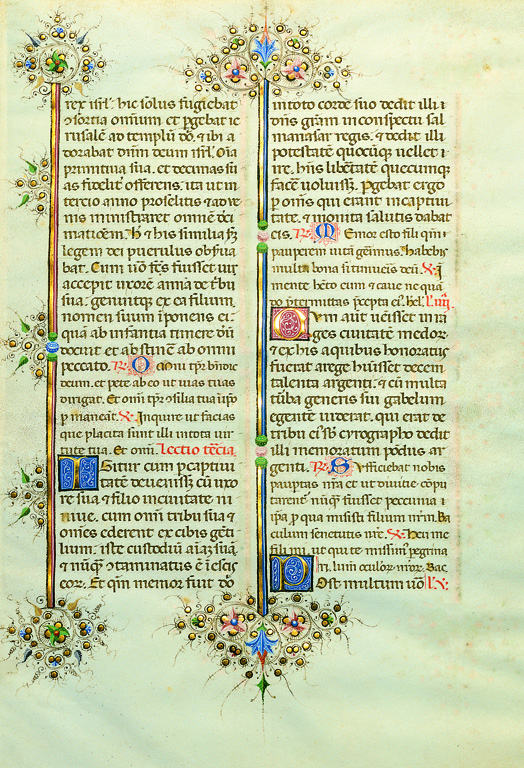 rex iſrl̄. hic ſolus fugiebat
ↄſortia omnium et ꝑgebat ie
ruſalē ad templū dn̄i. & ibi a
dorabat dn̄m deum iſrl̄. Oīa
primitiua ſua. et decimas ſu
as fideliṫ offerens. ita ut in
tercio anno proſelitis & adue
nis miniſtraret omnē deci
maticēm. Ħ & his ſimilia ſcd̄m
legem dei puerulus obſrua
bat. Cum uo᷑ fc̄s fuiſſet uir
accepit uxorē. annā de tribu
ſua. genuitque ex ea filium.
nomen ſuum īponens ei.
quā ab infantia timere dn̄
docuit et abſtinē ab omni
peccato. R. Omni tp̄r bn̄dic
deum. et pete ab eo ut uias tuas
dirigat. Et omī tp̄r ꝯſilia tua ī ipſo
ꝑmaneāt. ℣. Inquire ut facias
que placita ſunt illi in tota uir
tute tua. Et omī. Lectio tēcia.
Igitur cum ꝑ captiui
tatē deueniſſꝫ cū uxo
re ſua & filio in ciuitatē ni
niue. cum omī tribu ſua &
omēs ederent ex cibis gēti
lium. iſte cuſtodiuit aīaꝫ ſuā
& nūqꝫ ↄtaminatus ē ī eſcis
eoꝝ. Et qm̄ memor fuit dn̄i
in toto corde ſuo dedit illi
dn̄s gr̄am in conſpectu ſal
manaſar regis. & dedit illi
poteſtatē quocūqꝫ uellet i
re. hn̄s libertatē quecumque
facē uoluiſſꝫ. Pgebat ergo
ꝑ omīs qui erant in captiui
tate. & monita ſalutis dabat
eis. R. Memor eſto fili qm̄
pauperem uitā gerimus. habebis
multa bona ſi timueris deū. ℣. In
mente hēto eum & caue ne quā
do p̄termittas p̄cepta ei᷒. hēs. L. iiii.
Cum aūt ueniſſet in ra
ges ciuitatē medoꝝ.
& ex his a quibus honoratus
fuerat a rege hūiſſet decem
talenta argenti. & cū multa
tuba generis ſui gabelum
egentē uiderat. qui erat de
tribu ei᷒ ſb̄ cyrographo dedit
illi memoratum pōdus ar
genti. R. Sufficiebat nobis
paupertas nr̄a et ut diuitie ↄpu
tarent nūqꝫ fuiſſet pecunia i
ip̄a ꝓ qua miſiſti filium nr̄m. Ba
culum ſenectutis nr̄e. ℣. Heu me
fili mi. ut quid te miſſim᷒ pegrina
ri. lumē oculoꝝ nr̄oꝝ. Bac.
Post multum uō L. v.